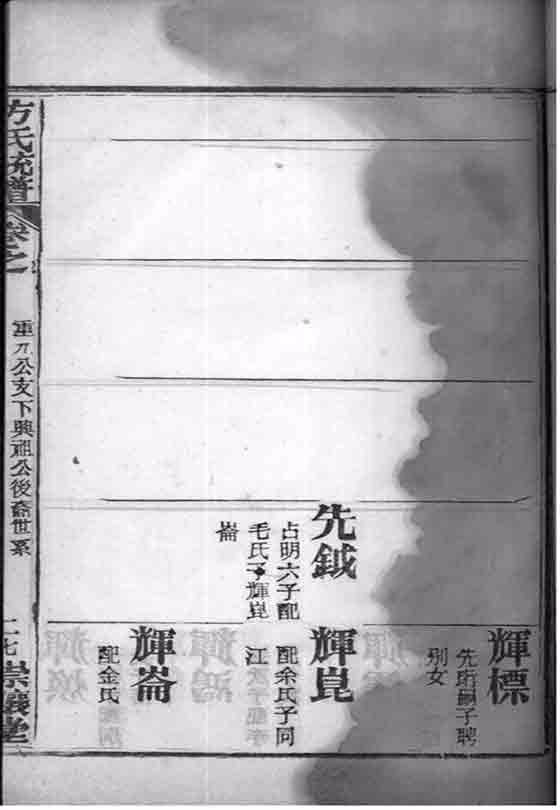 輝標
先珩嗣子聘
別女
先鉞
占明六子配
毛氏子輝崑
崙
輝崑
配余氏子同
江
輝崙
配金氏
方氏統譜
卷之
重九公支下興祖公後裔世系
二七
崇讓堂